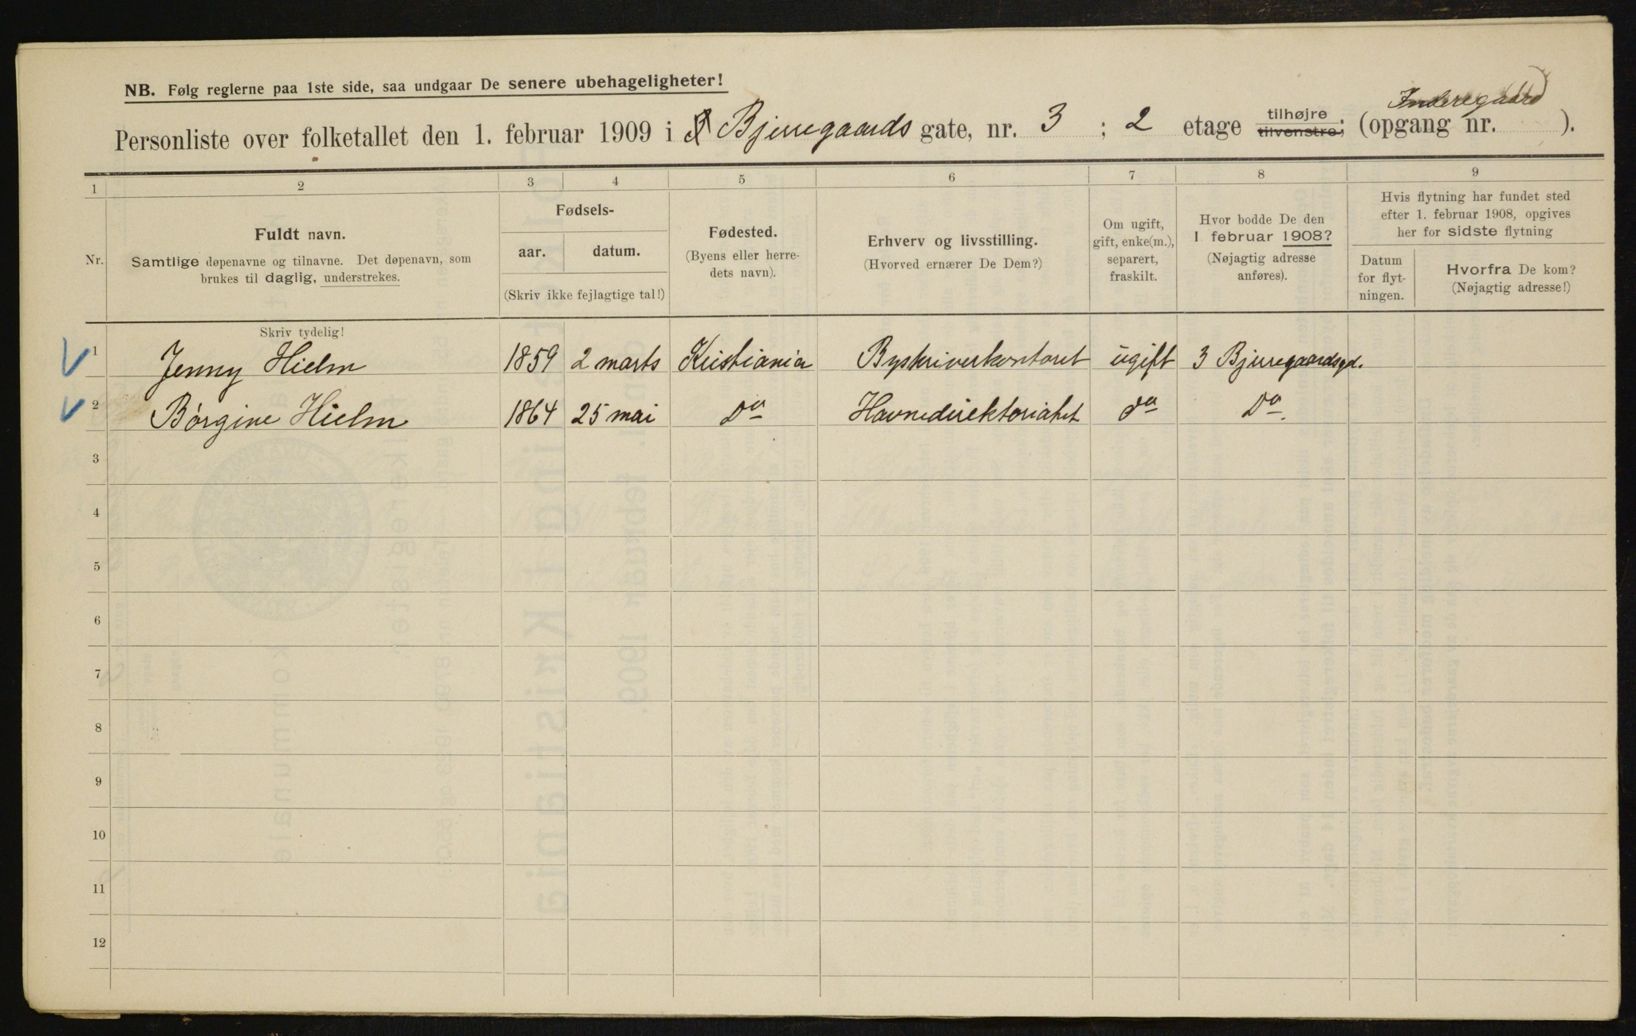 NB. Følg reglerne paa 1ste side, saa undgaar De senere ubehageligheter!
Personliste over folketallet den 1. februar 1909 i Bjerregaards gate, nr. 3 ; 2 etage tilhøjre tilvenstre; (opgang nr. ).
1 2 3 4 5 6 7 8 9
Nr.
Fuldt navn.
Samtlige døpenavne og tilnavne. Det døpenavn, som
brukes til daglig, understrekes.
Fødsels-
aar. datum.
(Skriv ikke fejlagtige tal!)
Fødested.
(Byens eller herre-
dets navn).
Erhverv og livsstilling.
(Hvorved ernærer De Dem?)
Om ugift,
gift, enke(m.),
separert,
fraskilt.
Hvor bodde De den
1 februar 1908?
(Nøjagtig adresse
anføres).
Hvis flytning har fundet sted
efter 1. februar 1908, opgives
her for sidste flytning
Datum
for flyt-
ningen.
Hvorfra De kom?
(Nøjagtig adresse!)
Skriv tydelig!
1 Jenny Hielm 1859 2 marts Kristiania Byskriverkontoret ugift 3 Bjerregaardsgd.
2 Börgine Hielm 1864 25 mai Do Havnedirektoriatet do Do.
3
4
5
6
7
8
9
10
11
12